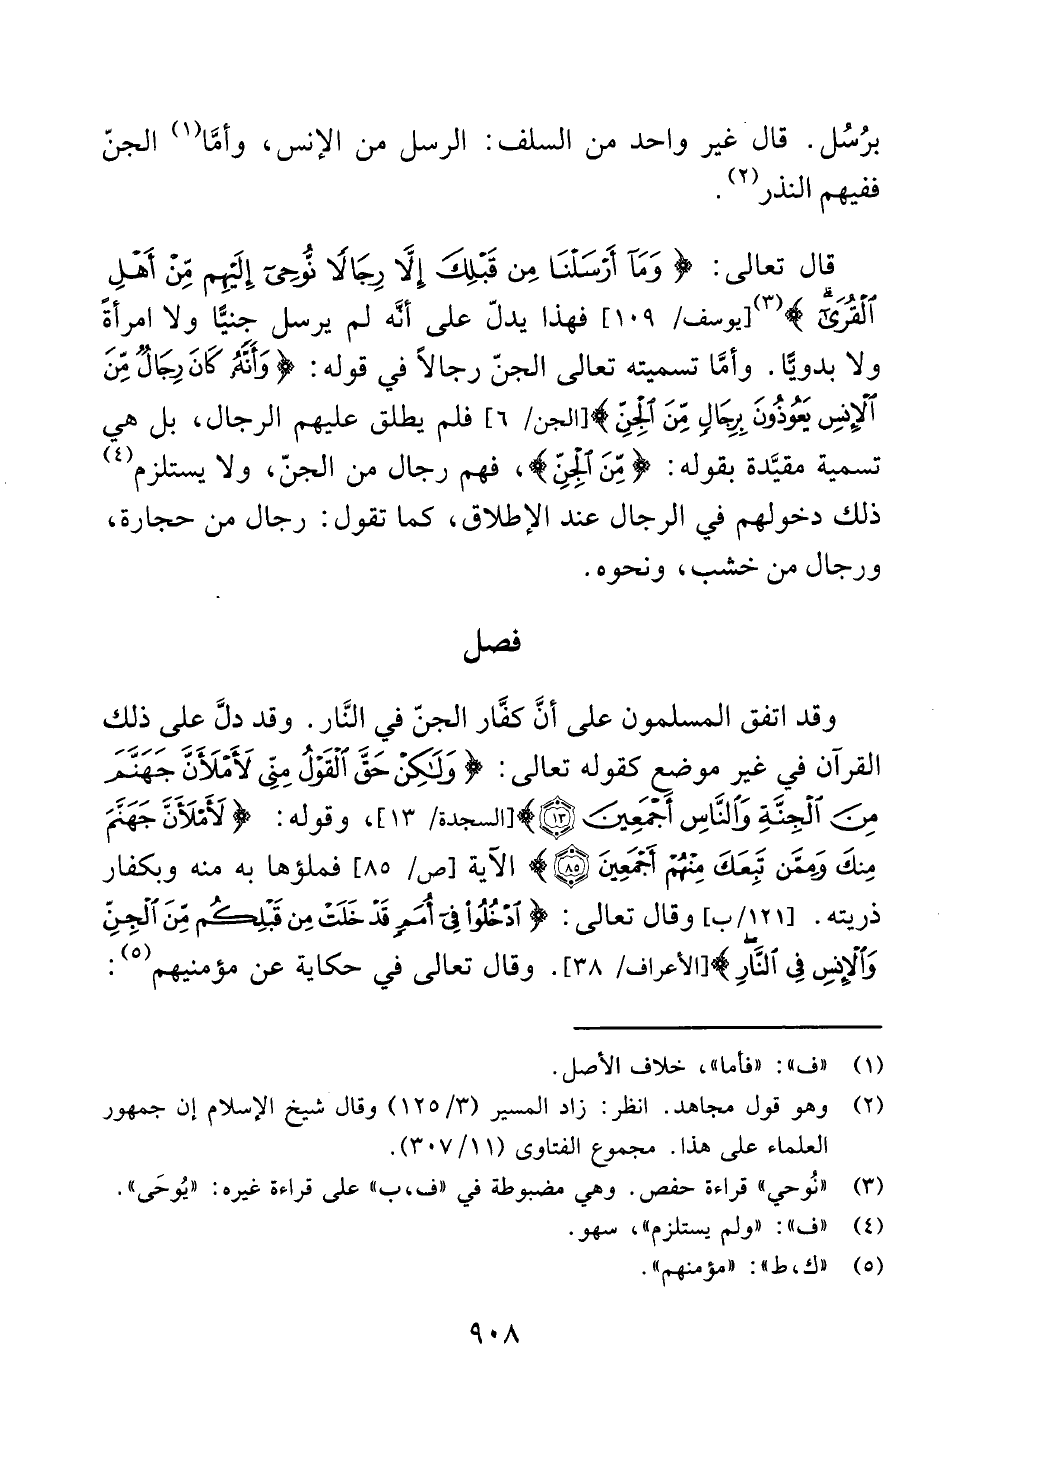 برُسُل. قال غير واحد من السلف: الرسل من الإنس، وأمَّا(١) الجنّ
ففيهم النذر(٢).
قال تعالى: ﴿وَمَآ أَرْسَلْنَا مِن قَبْلِكَ إِلَّا رِجَالًا نُّوحِىٓ إِلَيْهِم مِّنْ أَهْلِ
ٱلْقُرَىٰٓۗ﴾(٣)[يوسف/ ١٠٩] فهذا يدلّ على أنَّه لم يرسل جنيًّا ولا امرأةً
ولا بدويًّا. وأمَّا تسميته تعالى الجنّ رجالاً في قوله: ﴿وَأَنَّهُۥ كَانَ رِجَالٌ مِّنَ
ٱلْإِنسِ يَعُوذُونَ بِرِجَالٍ مِّنَ ٱلْجِنِّ﴾[الجن/ ٦] فلم يطلق عليهم الرجال، بل هي
تسمية مقيَّدة بقوله: ﴿مِّنَ ٱلْجِنِّ﴾، فهم رجال من الجنّ، ولا يستلزم(٤)
ذلك دخولهم في الرجال عند الإطلاق، كما تقول: رجال من حجارة،
ورجال من خشب، ونحوه.
فصل
وقد اتفق المسلمون على أنَّ كفَّار الجنّ في النَّار. وقد دلَّ على ذلك
القرآن في غير موضع كقوله تعالى: ﴿وَلَٰكِنْ حَقَّ ٱلْقَوْلُ مِنِّى لَأَمْلَأَنَّ جَهَنَّمَ
مِنَ ٱلْجِنَّةِ وَٱلنَّاسِ أَجْمَعِينَ ١٣﴾[السجدة/ ١٣]، وقوله: ﴿لَأَمْلَأَنَّ جَهَنَّمَ
مِنكَ وَمِمَّن تَبِعَكَ مِنْهُمْ أَجْمَعِينَ ٨٥﴾ الآية [ص/ ٨٥] فملؤها به منه وبكفار
ذريته. [١٢١/ب] وقال تعالى: ﴿ٱدْخُلُوا۟ فِىٓ أُمَمٍ قَدْ خَلَتْ مِن قَبْلِكُم مِّنَ ٱلْجِنِّ
وَٱلْإِنسِ فِى ٱلنَّارِۖ﴾[الأعراف/ ٣٨]. وقال تعالى في حكاية عن مؤمنيهم(٥):
(١) «ف»: «فأما»، خلاف الأصل.
(٢) وهو قول مجاهد. انظر: زاد المسير (٣/ ١٢٥) وقال شيخ الإسلام إن جمهور
العلماء على هذا. مجموع الفتاوى (١١/ ٣٠٧).
(٣) «نُوحي» قراءة حفص. وهي مضبوطة في «ف،ب» على قراءة غيره: «يُوحَى».
(٤) «ف»: «ولم يستلزم»، سهو.
(٥) «ك،ط»: «مؤمنهم».
٩٠٨